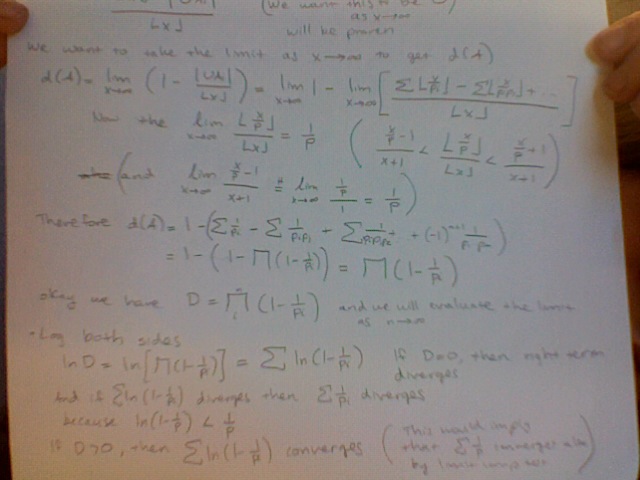 (We want this to be 0
⌊x⌋ as x→∞
will be proven
We want to take the limit as x→∞ to get d(A)
d(A) = lim x→∞ (1 - |∪A|/⌊x⌋) = lim x→∞ 1 - lim x→∞ [ Σ⌊x/pᵢ⌋ - Σ⌊x/pᵢpⱼ⌋ + ... / ⌊x⌋ ]
Now the lim x→∞ ⌊x/p⌋/⌊x⌋ = 1/p ( (x/p - 1)/(x+1) < ⌊x/p⌋/⌊x⌋ < (x/p + 1)/(x+1) )
(and lim x→∞ (x/p - 1)/(x+1) = lim x→∞ (1/p)/1 = 1/p )
Therefore d(A) = 1 - (Σ 1/pᵢ - Σ 1/pᵢpⱼ + Σ 1/pᵢpⱼpₖ + ... + (-1)ⁿ⁺¹ 1/pᵢ...pₙ)
= 1 - (1 - Π(1 - 1/pᵢ)) = Π(1 - 1/pᵢ)
okay we have D = Π(1 - 1/pᵢ) and we will evaluate the limit
as n→∞
Log both sides
ln D = ln[Π(1 - 1/pᵢ)] = Σ ln(1 - 1/pᵢ) If D=0, then right term
diverges
And if Σ ln(1 - 1/p) diverges then Σ 1/pᵢ diverges
because ln(1 - 1/p) < 1/p
If D>0, then Σ ln(1 - 1/p) converges (This would imply
that Σ 1/p converges also
by limit comp test)